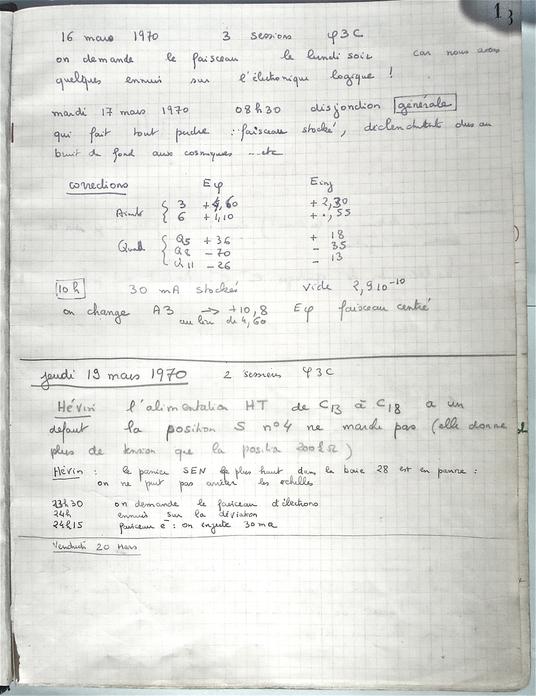 13
16 mars 1970 3 sessions φ3C
on demande le faisceau le lundi soir car nous avons
quelques ennuis sur l'électronique logique !
mardi 17 mars 1970 08h30 disjonction générale
qui fait tout perdre : faisceau stocké, déclenchements dus au
bruit de fond aux cosmiques ... etc
corrections Eφ Einj
Aimants 3 +4,60 +2,30
6 +1,10 +.,55
Quad Q5 +36 + 18
Q8 -70 - 35
Q11 -26 - 13
10h 30 mA stockés vide 2,9 10⁻¹⁰
on change A3 → +10,8 Eφ faisceau centré
au lieu de 4,60
jeudi 19 mars 1970 2 sessions φ3C
Hévin l'alimentation HT de C13 à C18 a un
défaut la position S n°4 ne marche pas (elle donne
plus de tension que la position 200kΩ)
Hévin : le panier SEN le plus haut dans la baie 28 est en panne :
on ne peut pas arrêter les échelles
23h30 on demande le faisceau d'électrons
24h ennuis sur la déviation
24h15 faisceau e⁻ : on injecte 30 mA
Vendredi 20 Mars